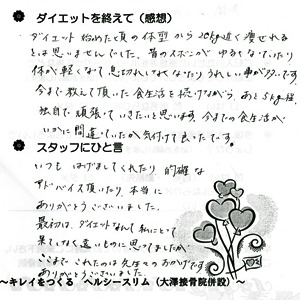 ダイエットを終えて（感想）
ダイエット始めた頃の体型から20kg近く痩せれる
とは思いませんでした。昔のズボンがゆるくなったり
体が軽くなって息切れしなくなったりうれしい事が多いです。
今まで教えて頂いた食生活を続けながら、あと5kg程、
独自で頑張っていきたいと思います。今までの食生活が
いかに間違っていたか気付けて良かったです。
スタッフにひと言
いつもはげましてくれたり、的確な
アドバイス頂いたり、本当に
ありがとうございました。
最初は、ダイエットなんて私にとって
果てしなく遠いものに思ってましたが、
ここまでこれたのは先生のおかげです
ありがとうございました。
～キレイをつくる ヘルシースリム（大澤接骨院併設）～